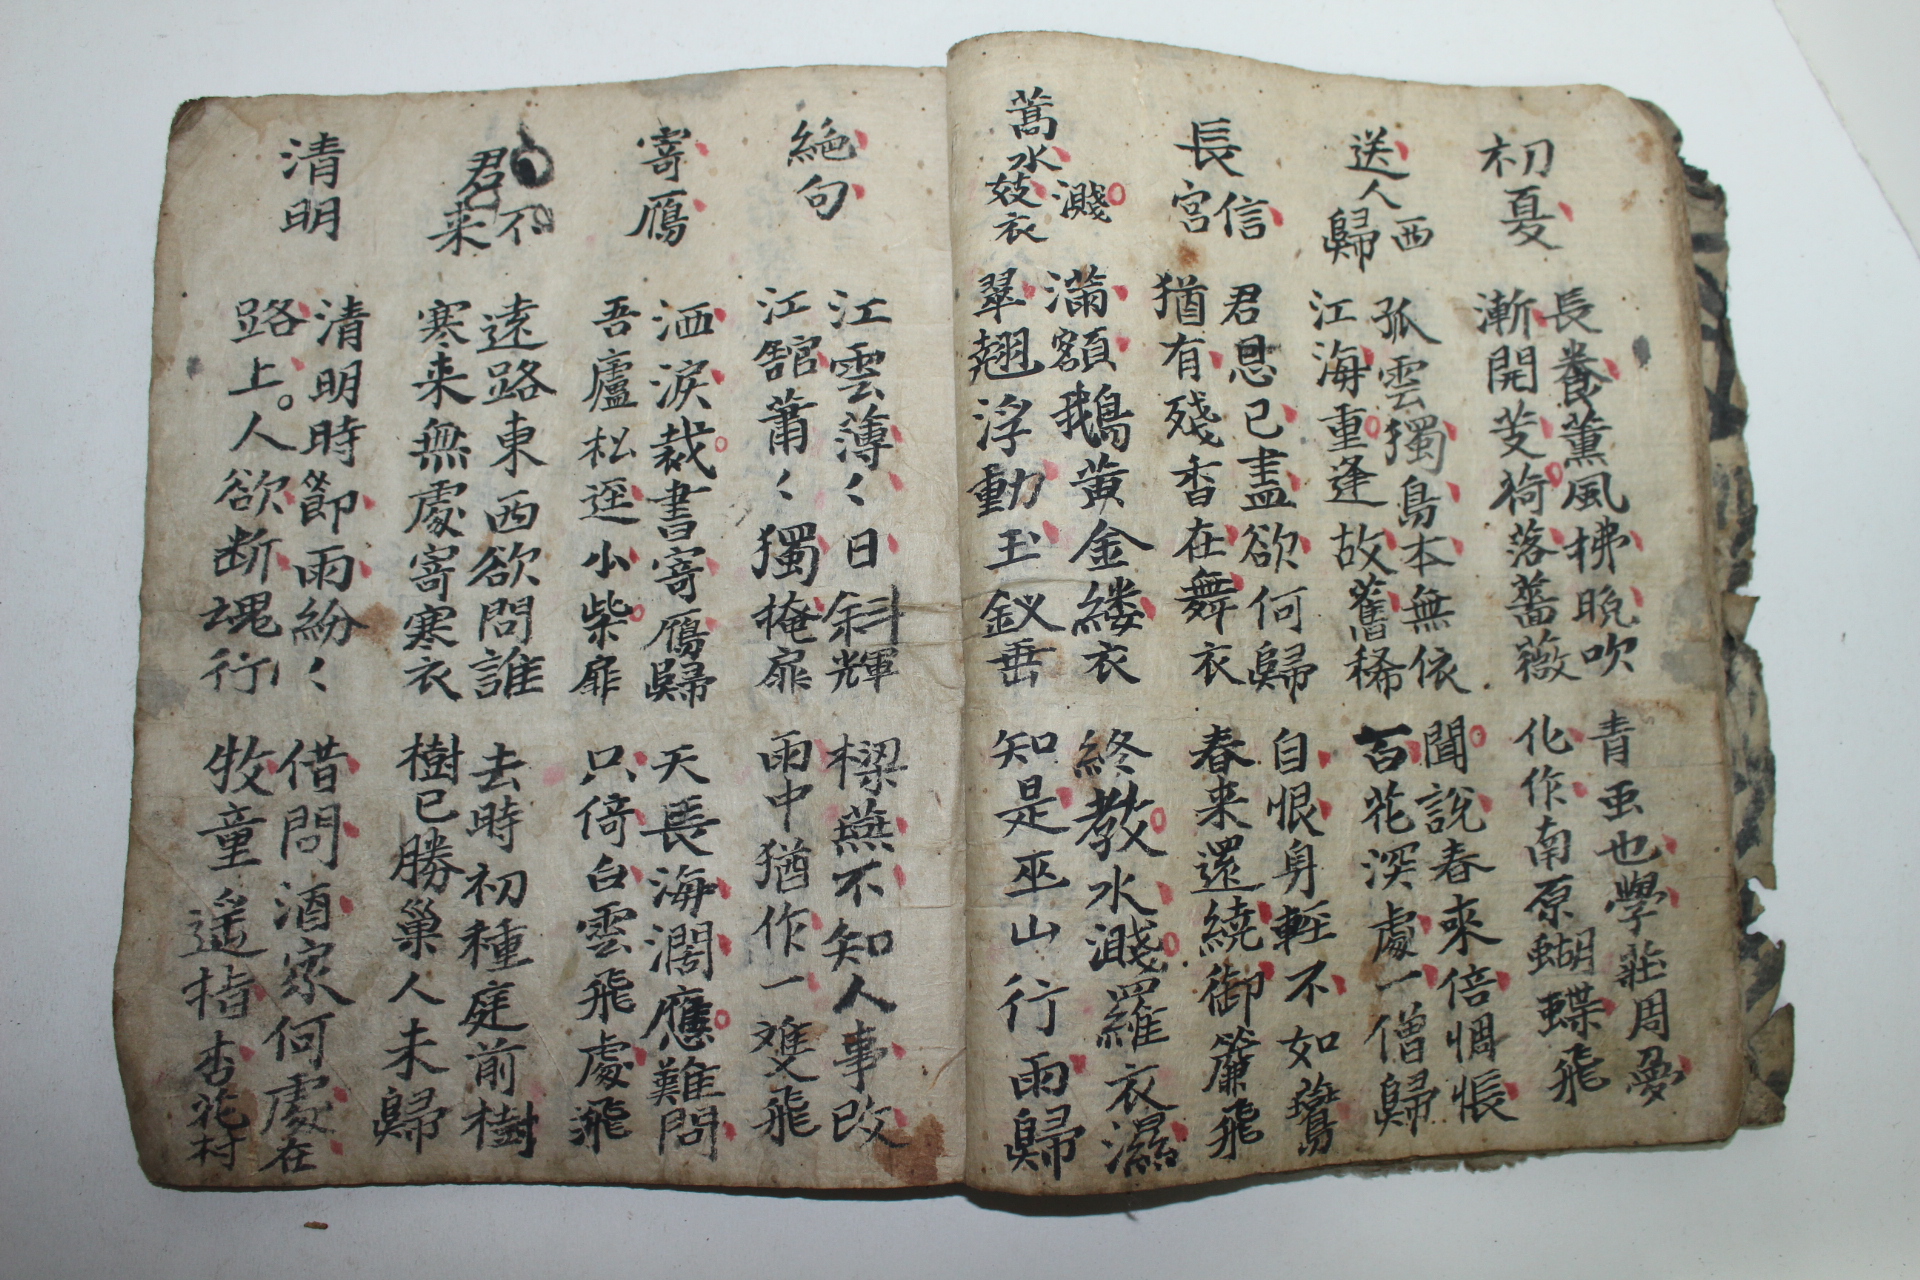 初夏
長養薫風拂晩吹
漸開芰荷落薔薇
青虫也學莊周夢
化作南原蝴蝶飛
送人西歸
孤雲獨鳥本無依
江海重逢故舊稀
聞說春來倍惆悵
百花深處一僧歸
長信宮
君恩已盡欲何歸
猶有殘香在舞衣
自恨身輕不如鷰
春来還繞御簾飛
蒿水濺妓衣
滿額鵝黃金縷衣
翠翹浮動玉釵垂
終教水濺羅衣濕
知是巫山行雨歸
絶句
江雲薄〻日斜輝
江舘蕭〻獨掩扉
樑燕不知人事改
雨中猶作一雙飛
寄鴈
洒淚裁書寄鴈歸
吾廬松逕小柴扉
天長海濶應難問
只倚白雲飛處飛
君不来
遠路東西欲問誰
寒来無處寄寒衣
去時初種庭前樹
樹已勝巢人未歸
清明
清明時節雨紛〻
路上人欲断塊行
借問酒家何處在
牧童遥指杏花村